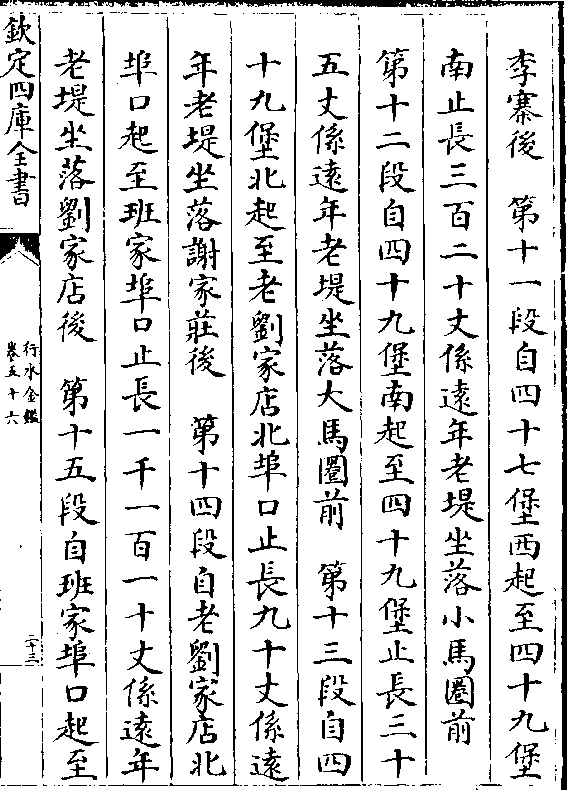 李寨後　第十一段自四十七堡西起至四十九堡
南止長三百二十丈係遠年老堤坐落小馬圈前
第十二段自四十九堡南起至四十九堡止長三十
五丈係遠年老堤坐落大馬圈前　第十三段自四
十九堡北起至老劉家店北埠口止長九十丈係遠
年老堤坐落謝家莊後　第十四段自老劉家店北
埠口起至班家埠口止長一千一百一十丈係遠年
老堤坐落劉家店後　第十五段自班家埠口起至
欽定四庫全書
行水金鑑
卷五十六
二十三